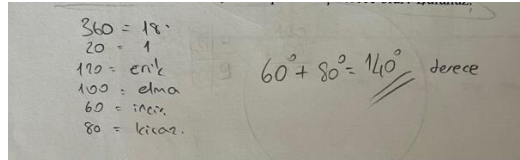 360 = 18
20 = 1
120 = erik
100 = elma
60 = incir
80 = kiraz.
60° + 80° = 140° derece